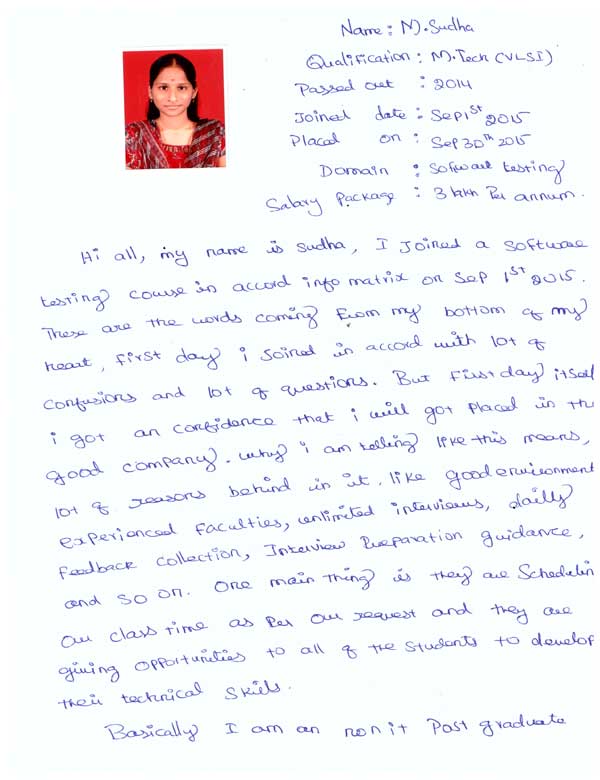 Name : M.Sudha
Qualification : M.Tech (VLSI)
Passed out : 2014
Joined date : Sep 1st 2015
Placed on : Sep 30th 2015
Domain : Software testing
Salary Package : 3 lakh Per annum.
Hi all, my name is Sudha, I Joined a Software
testing course in accord info matrix on Sep 1st 2015.
These are the words coming from my bottom of my
heart, first day i Joined in accord with lot of
confusions and lot of questions. But first day itself
i got an confidence that i will got placed in the
good company. Why i am telling like this means,
lot of reasons behind in it. like good environment
experienced faculties, unlimited interviews, daily
feedback collection, Interview Preparation guidance,
and so on. One main thing is they are Schedulin
our class time as Per our request and they are
giving opportunities to all of the students to develop
their technical skills.
Basically I am an non it Post graduate